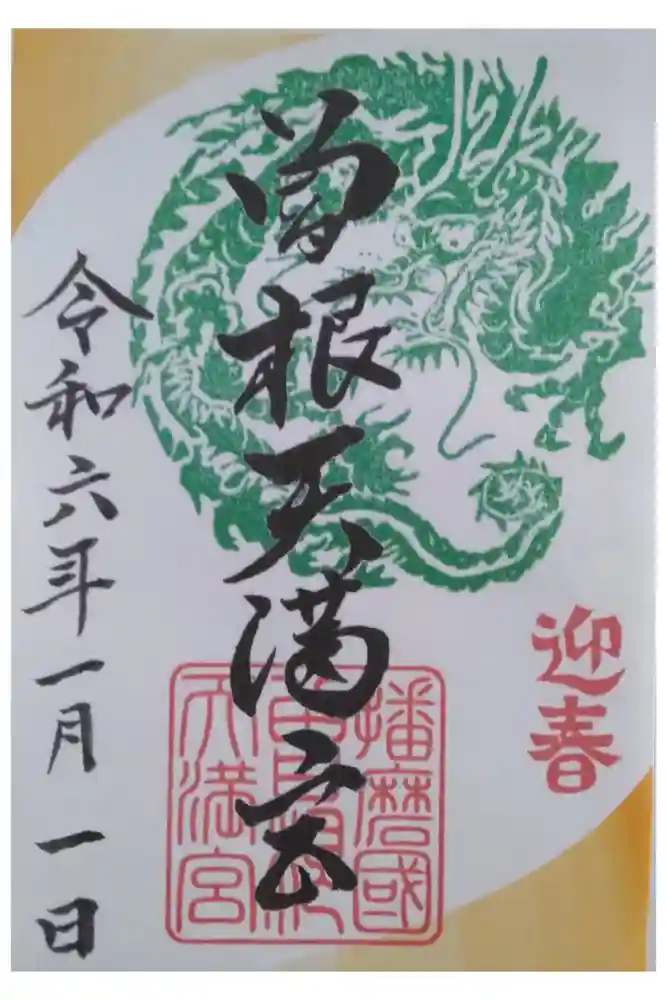 迎春
曽根天満宮
播磨國
天満宮
令和六年一月一日